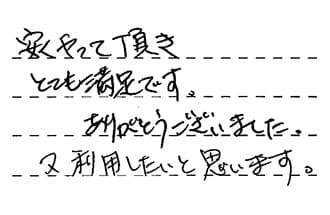 安くやって頂き
とても満足です。
ありがとうございました。
又利用したいと思います。